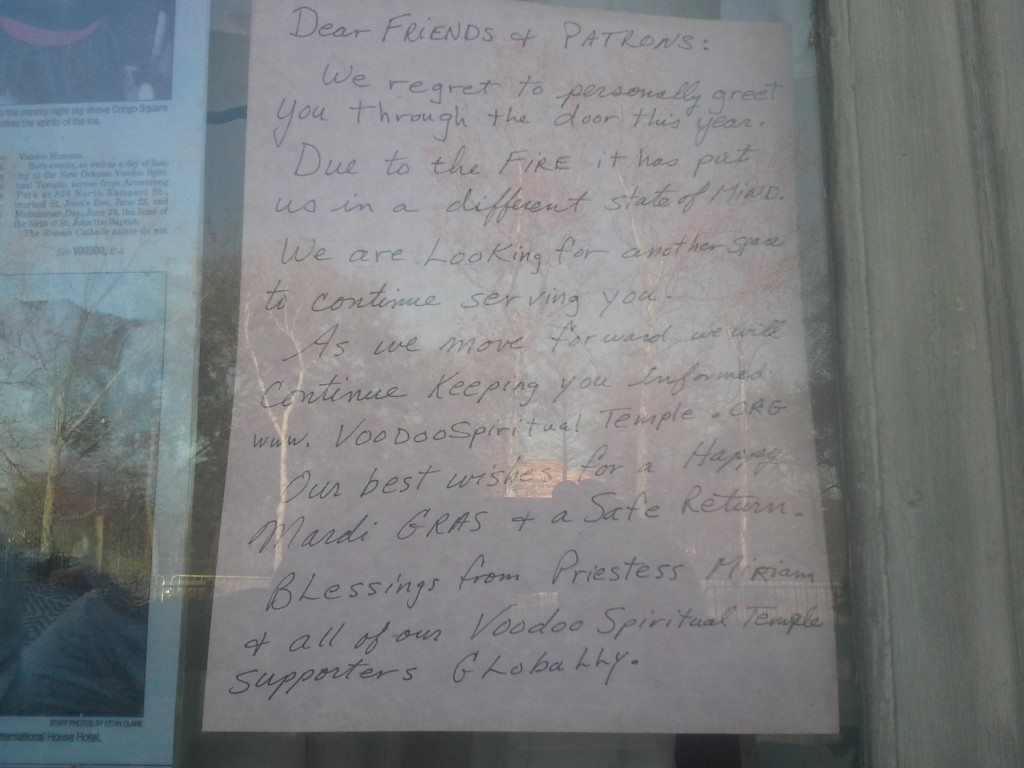 Dear FRIENDS & PATRONS:
We regret to personally greet
you through the door this year.
Due to the FIRE it has put
us in a different state of MIND.
We are Looking for another space
to continue serving you.
As we move forward we will
continue Keeping you informed:
www. VOODOOSpiritual Temple .ORG
Our best wishes for a Happy
Mardi GRAS & a Safe Return.
BLessings from Priestess Miriam
& all of our Voodoo Spiritual Temple
supporters GLobaLLy.
the steamy night sky above Congo Square
okes the spirits of the loa.
Voodoo Museum.
Both events, as well as a day of
ing at the New Orleans Voodoo Spiri-
tual Temple, across from Armstrong
Park at 828 North Rampart St.,
marked St. John's Eve, June 23, and
Midsummer Day, June 24, the feast of
the birth of St. John the Baptist.
The Roman Catholic saints do not
See VOODOO,
STAFF PHOTOS BY KEVIN CLARK
ternational House Hotel.